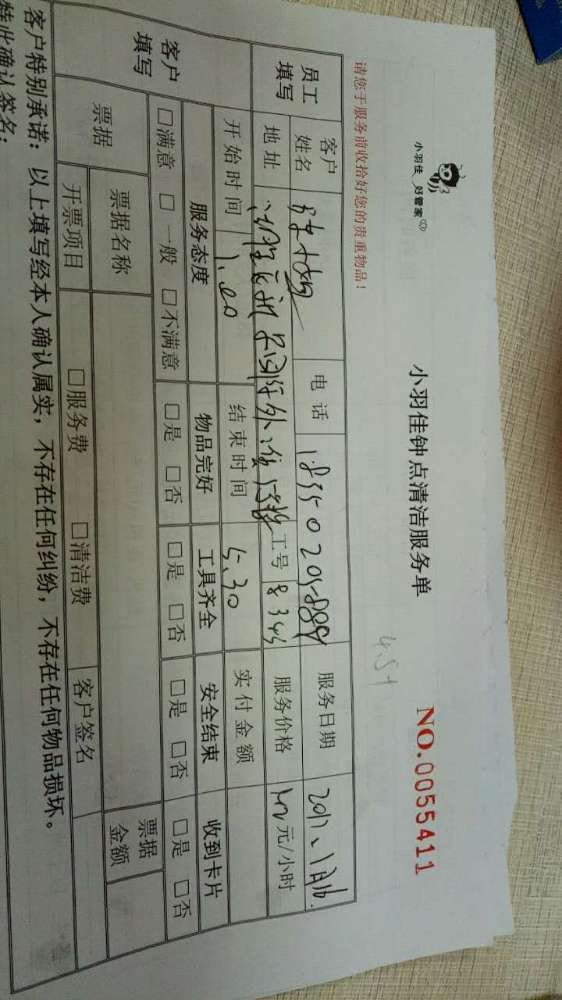 小羽佳 好管家
小羽佳钟点清洁服务单
NO.0055411
请您于服务前收拾好您的贵重物品!
员工填写 客户姓名 电话 服务日期
地址 工号 8345 服务价格 元/小时
开始时间 1.00 结束时间 5.30 实付金额
客户填写 服务态度 物品完好 工具齐全 安全结束 收到卡片
□满意 □一般 □不满意 □是 □否 □是 □否 □是 □否 □是 □否
票据 票据名称 客户签名 票据金额
开票项目 □服务费 □清洁费
客户特别承诺:以上填写经本人确认属实,不存在任何纠纷,不存在任何物品损坏。
特此确认签名: